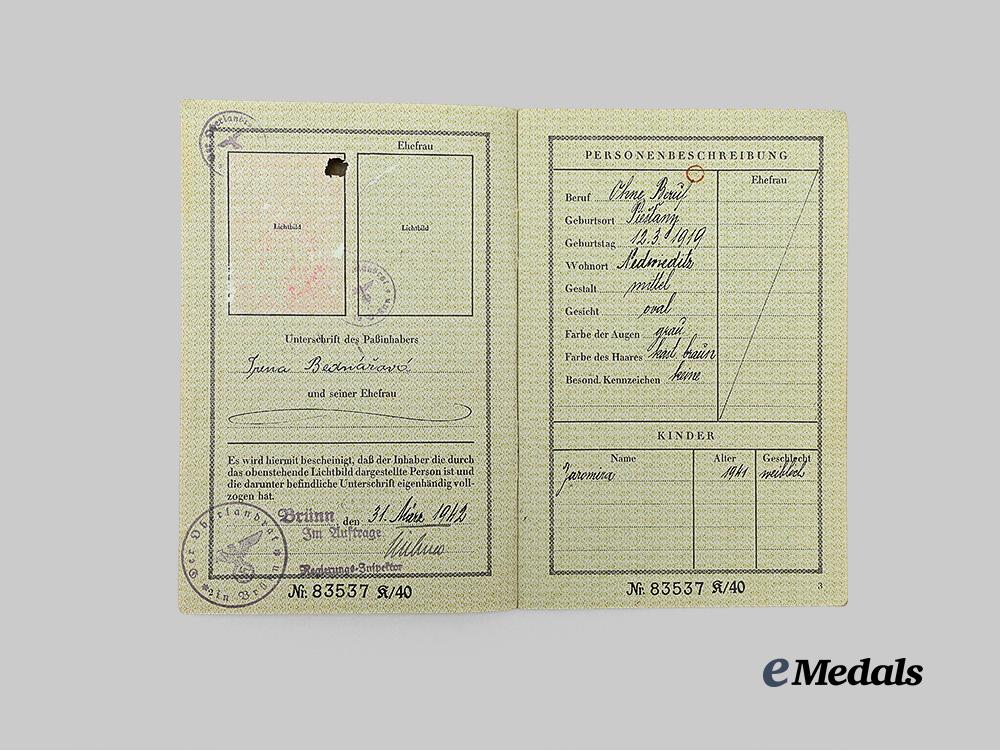 Der Oberlandrat
Ehefrau
Lichtbild
Lichtbild
Unterschrift des Paßinhabers
Irena Bednářová
und seiner Ehefrau
Es wird hiermit bescheinigt, daß der Inhaber die durch
das obenstehende Lichtbild dargestellte Person ist und
die darunter befindliche Unterschrift eigenhändig voll-
zogen hat.
Brünn, den 31. März 1942
Im Auftrage
Regierungs-Inspektor
Der Oberlandrat
in Brünn
Nr. 83537 K/40
PERSONENBESCHREIBUNG
Ehefrau
Beruf Ohne Beruf
Geburtsort Piešťany
Geburtstag 12.3.1919
Wohnort Nedweditz
Gestalt mittel
Gesicht oval
Farbe der Augen grau
Farbe des Haares kast. braun
Besond. Kennzeichen keine
KINDER
Name Alter Geschlecht
Jaromira 1941 weiblich
Nr. 83537 K/40
3
eMedals